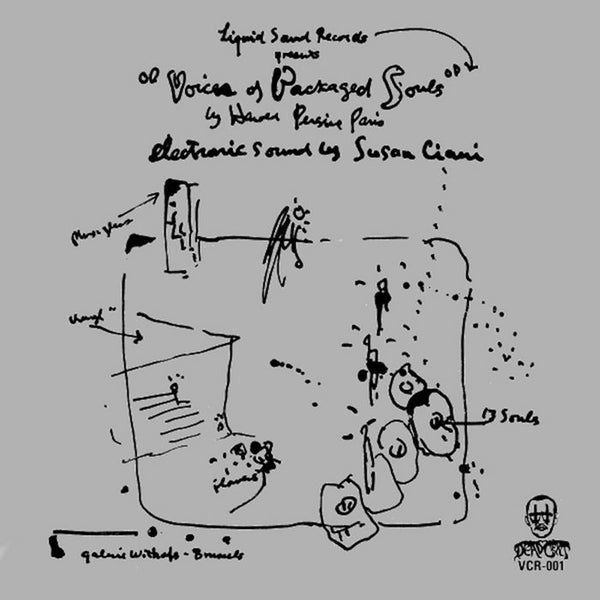 Liquid Sound Records
presents
"Voices of Packaged Souls"
by Harold Persico Paris
electronic sound by Susan Ciani
plexiglass
13 Souls
flowers
galerie Withofs - Brussels
DEADCERT
VCR-001